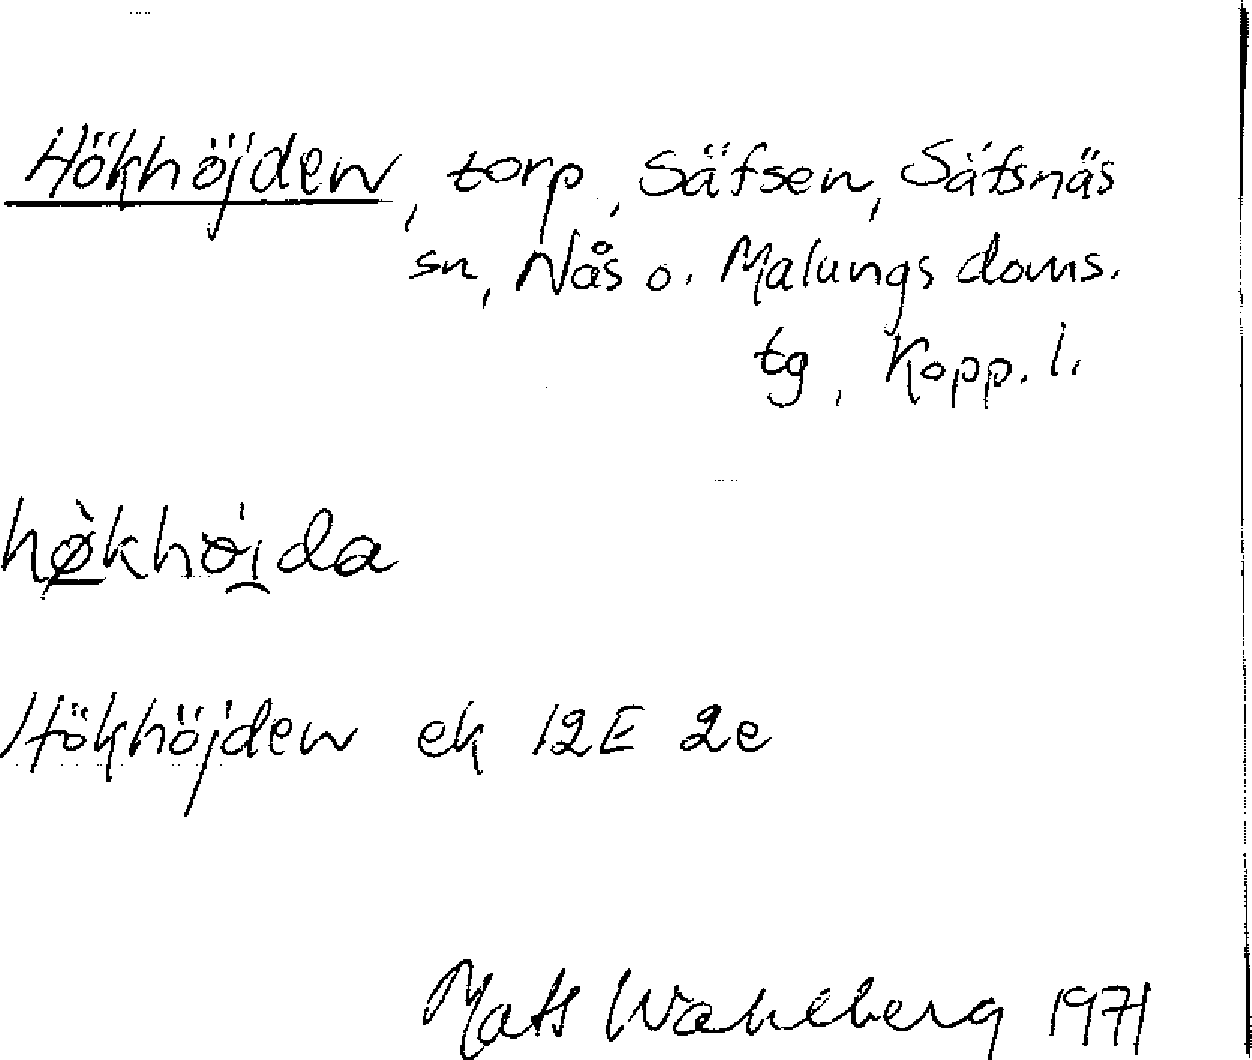 Hökhöjden, torp, Säfsen, Säfsnäs
sn, Nås o. Malungs doms.
tg, Kopp. l.
hø̀khöi̯da
Hökhöjden ek 12E 2e
Mats Wahlberg 1971